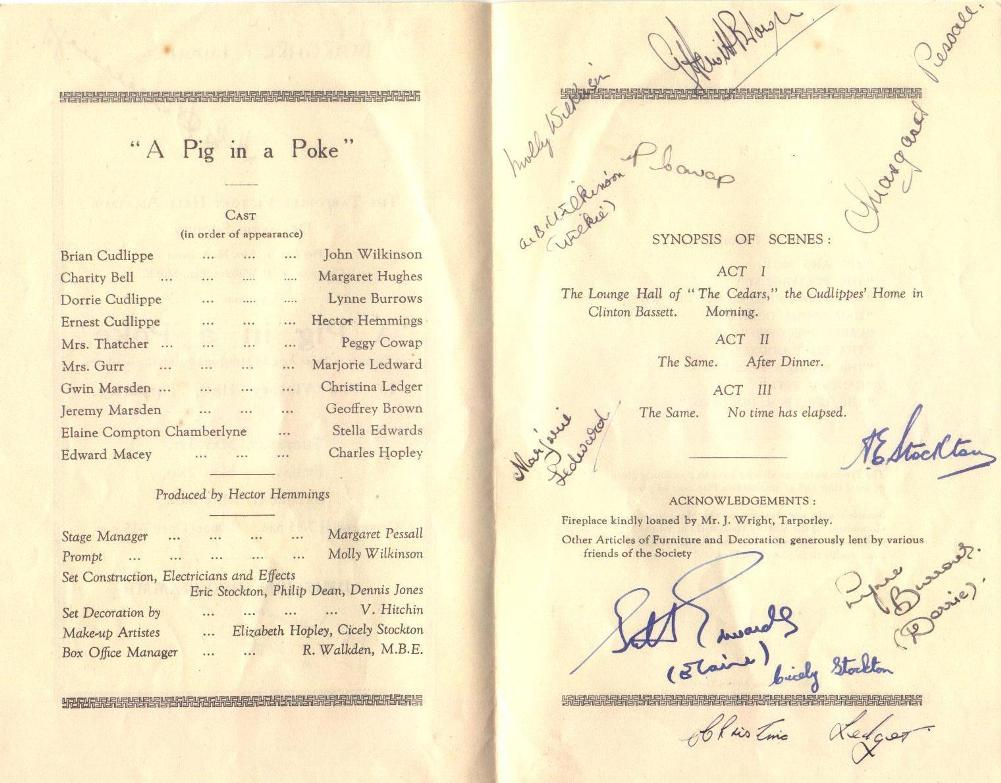 "A Pig in a Poke"
CAST
(in order of appearance)
Brian Cudlippe ... ... ... John Wilkinson
Charity Bell ... ... .... .... Margaret Hughes
Dorrie Cudlippe ... .... .... Lynne Burrows
Ernest Cudlippe ... ... ... Hector Hemmings
Mrs. Thatcher ... ... ... ... Peggy Cowap
Mrs. Gurr ... ... ... ... Marjorie Ledward
Gwin Marsden ... ... ... ... Christina Ledger
Jeremy Marsden ... ... ... Geoffrey Brown
Elaine Compton Chamberlyne ... Stella Edwards
Edward Macey ... ... ... Charles Hopley
Produced by Hector Hemmings
Stage Manager ... ... ... ... Margaret Pessall
Prompt ... ... ... ... ... Molly Wilkinson
Set Construction, Electricians and Effects
Eric Stockton, Philip Dean, Dennis Jones
Set Decoration by ... ... ... ... V. Hitchin
Make-up Artistes ... Elizabeth Hopley, Cicely Stockton
Box Office Manager ... ... R. Walkden, M.B.E.
Margaret Pessall.
Molly Wilkinson
P Cowap
Wilkinson
(Wilkie)
SYNOPSIS OF SCENES :
ACT I
The Lounge Hall of "The Cedars," the Cudlippes' Home in
Clinton Bassett. Morning.
ACT II
The Same. After Dinner.
ACT III
The Same. No time has elapsed.
Marjorie
Ledward
AE Stockton
ACKNOWLEDGEMENTS :
Fireplace kindly loaned by Mr. J. Wright, Tarporley.
Other Articles of Furniture and Decoration generously lent by various
friends of the Society
Lynne
Burrows.
(Dorrie).
Edwards
(Elaine)
Cicely Stockton
Christina Ledger